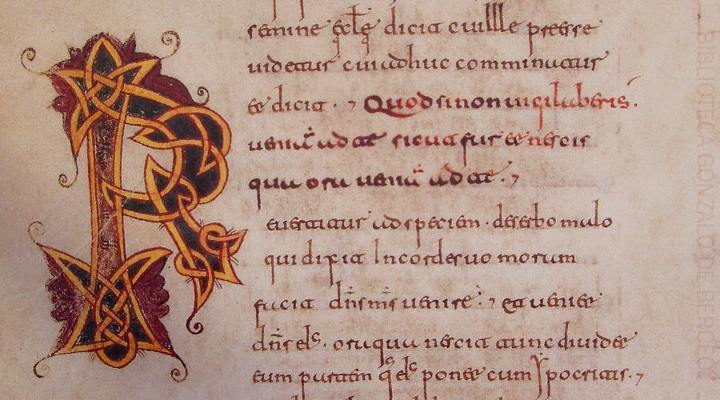 semine ecle dicta cui ille preesse
uidetur cui adhuc comminatus
et dicta · Quod si non uigilaberis·
ueniā ad te sicut fur et nescis
qua ora ueniā ad te·
R euertatur ad speciem· de serbo malo
qui dixit In corde suo moram
facit dn̄s ms̄ uenire· et ueniet
dn̄s eīs· ora qua nescit tunc diuidet
eum partem q eīs ponet cum ypocritas·
BIBLIOTECA GONZALO DE BERCEO